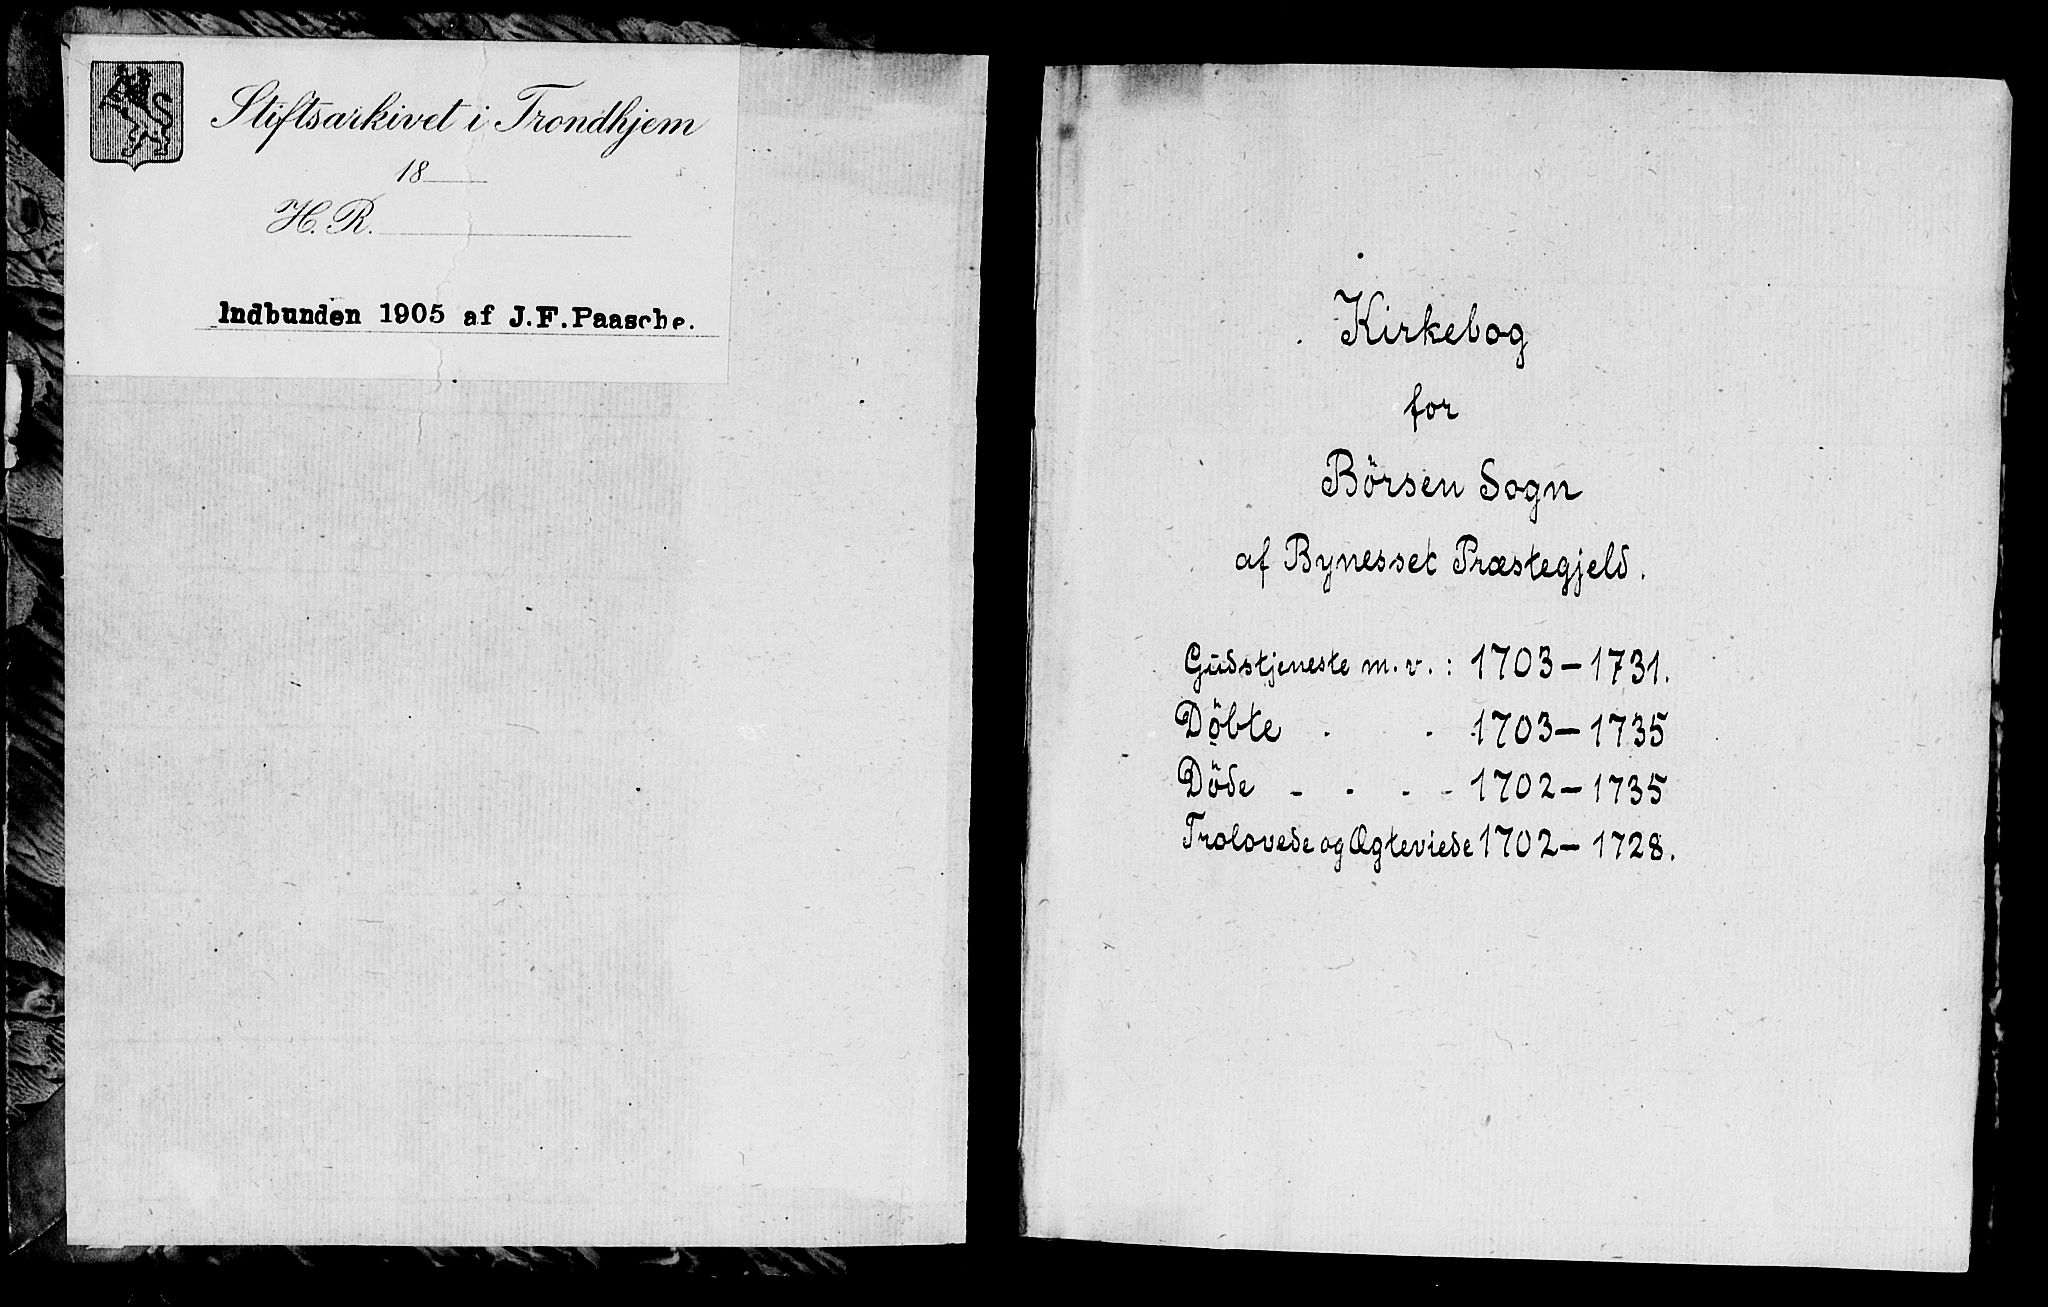 Stiftsarkivet i Trondhjem
18
H. R.
Indbunden 1905 af J.F.Paasche.
Kirkebog
for
Börsen Sogn
af Bynesset Præstegjeld.
Gudstjeneste m. v. : 1703 – 1731.
Döbte . . 1703 – 1735
Döde - - . - 1702 – 1735
Trolovede og Ægteviede 1702 – 1728.